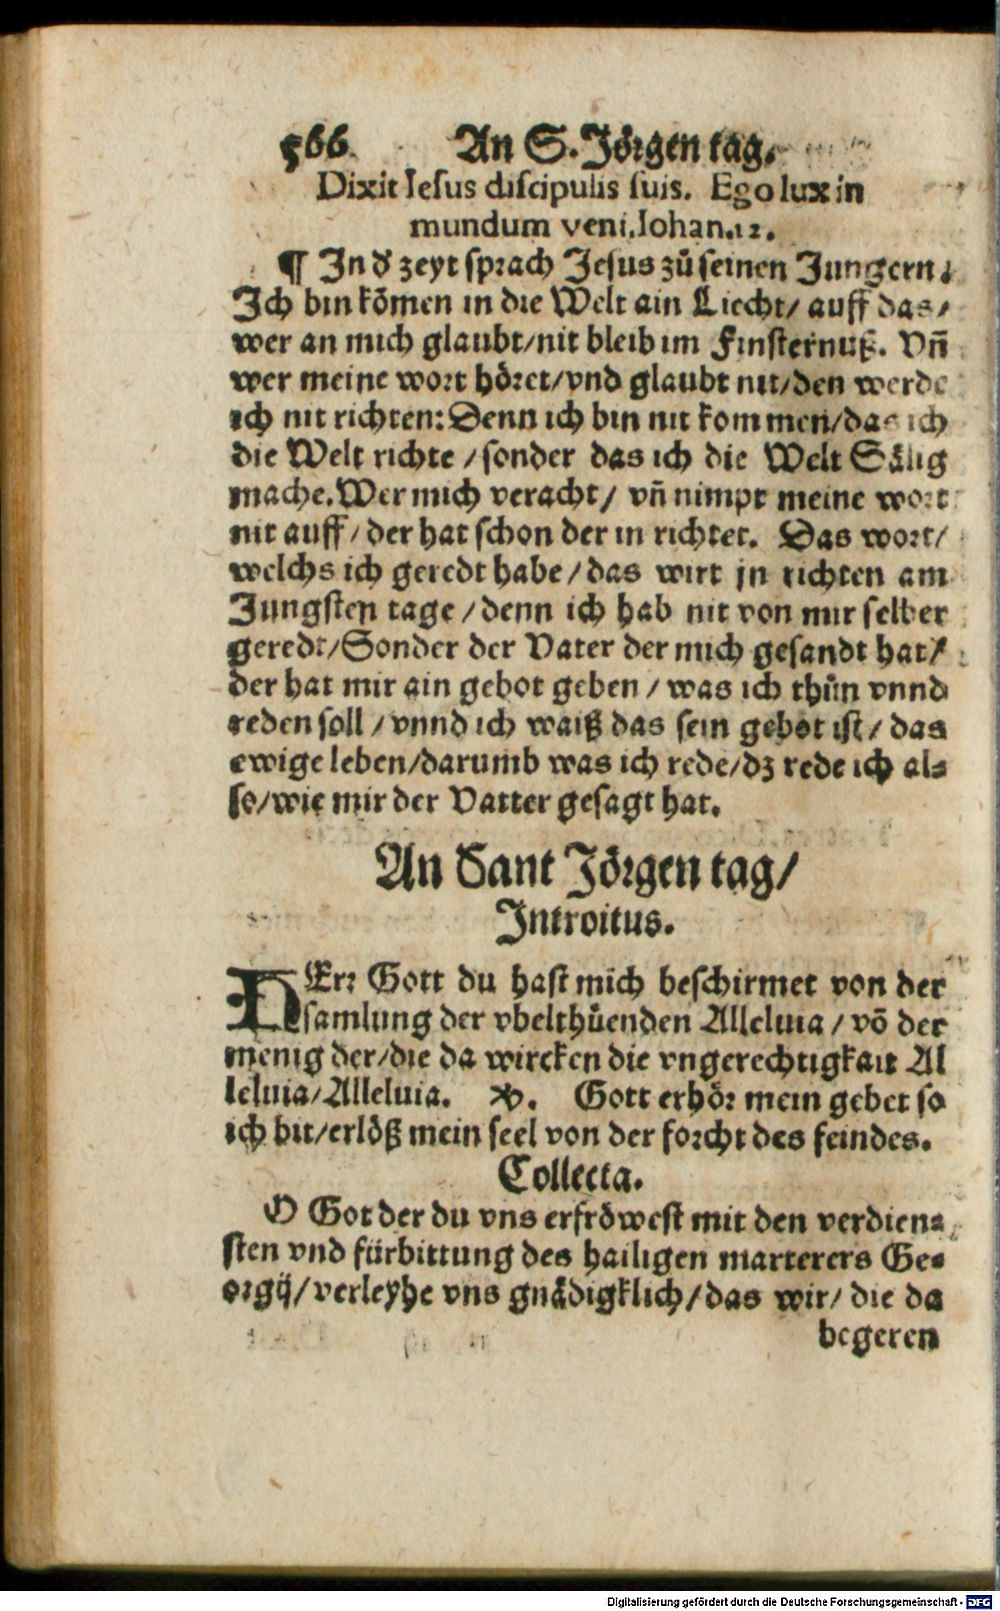 566 An S. Jörgen tag.
Dixit Iesus discipulis suis. Ego lux in
mundum veni. Iohan. 12.
¶ In d᷑ zeyt sprach Jesus zů seinen Jungern.
Ich bin kom̃en in die Welt ain Liecht/ auff das/
wer an mich glaubt/nit bleib im Finsternuß. Vñ
wer meine wort höret/vnd glaubt nit/den werde
ich nit richten: Denn ich bin nit kommen/das ich
die Welt richte /sonder das ich die Welt Sälig
mache. Wer mich veracht/ vñ nimpt meine wort
nit auff/der hat schon der in richtet. Das wort/
welchs ich geredt habe/das wirt jn richten am
Jungsten tage /denn ich hab nit von mir selber
geredt/Sonder der Vater der mich gesandt hat/
der hat mir ain gebot geben /was ich thůn vnnd
reden soll /vnnd ich waiß das sein gebot ist/ das
ewige leben/darumb was ich rede/dz rede ich al⸗
so/wie mir der Vatter gesagt hat.
An Sant Jörgen tag/
Introitus.
HErr Gott du hast mich beschirmet von der
samlung der vbelthůenden Alleluia /võ der
menig der/die da wircken die vngerechtigkait Al
leluia/Alleluia. ℣. Gott erhör mein gebet so
ich bit/erlöß mein seel von der forcht des feindes.
Collecta.
O Got der du vns erfröwest mit den verdien⸗
sten vnd fürbittung des hailigen marterers Ge⸗
orgij/verleyhe vns gnädigklich/das wir/ die da
begeren
Digitalisierung gefördert durch die Deutsche Forschungsgemeinschaft - DFG